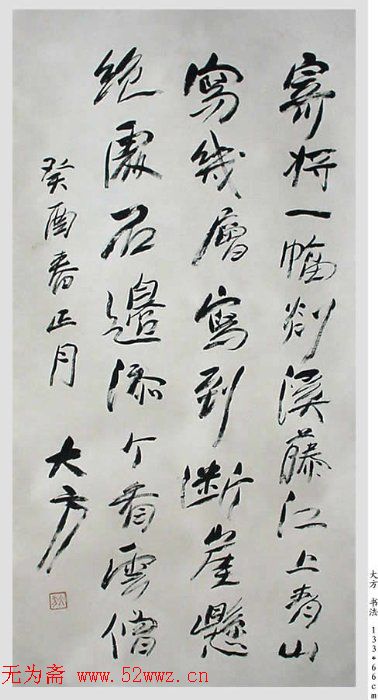 寄将一幅剡溪藤江上青山
寫幾層寫到断崖懸
絶處石邊添个看雲僧
癸酉春正月
大方
大方 书法 133*66cm
无为斋 www.52wwz.cn